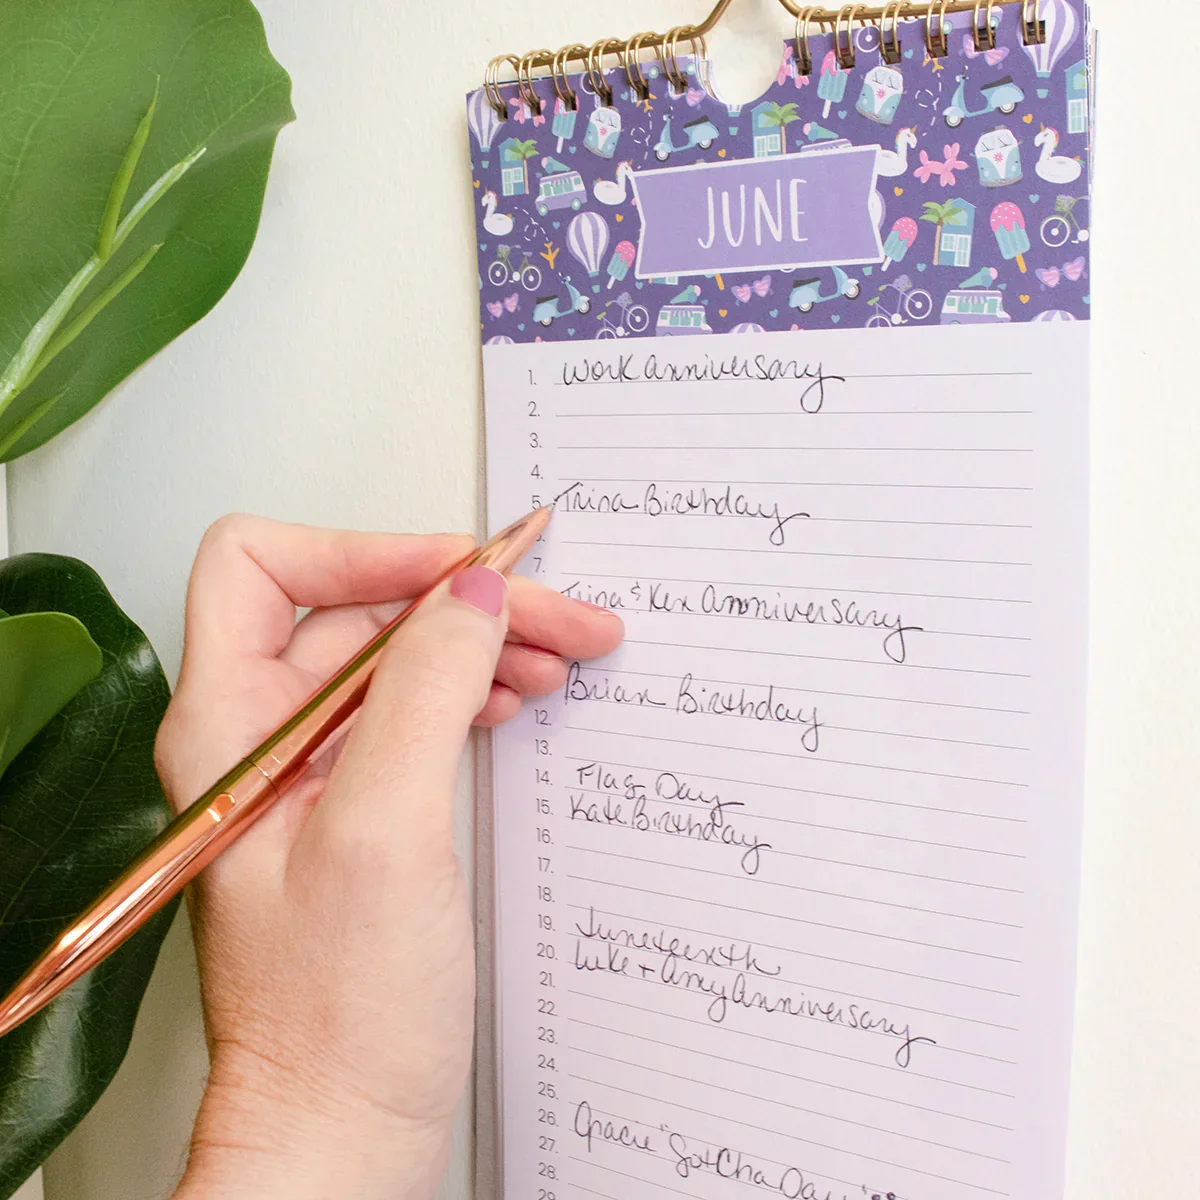 JUNE
1. Work Anniversary
2.
3.
4.
5. Trina Birthday
7.
Trina & Ken Anniversary
Brian Birthday
12.
13.
14. Flag Day
15. Kate Birthday
16.
17.
18.
19. Juneteenth
20. Luke + Amy Anniversary
21.
22.
23.
24.
25.
26. Gracie "GotCha Day"
27.
28.
29.